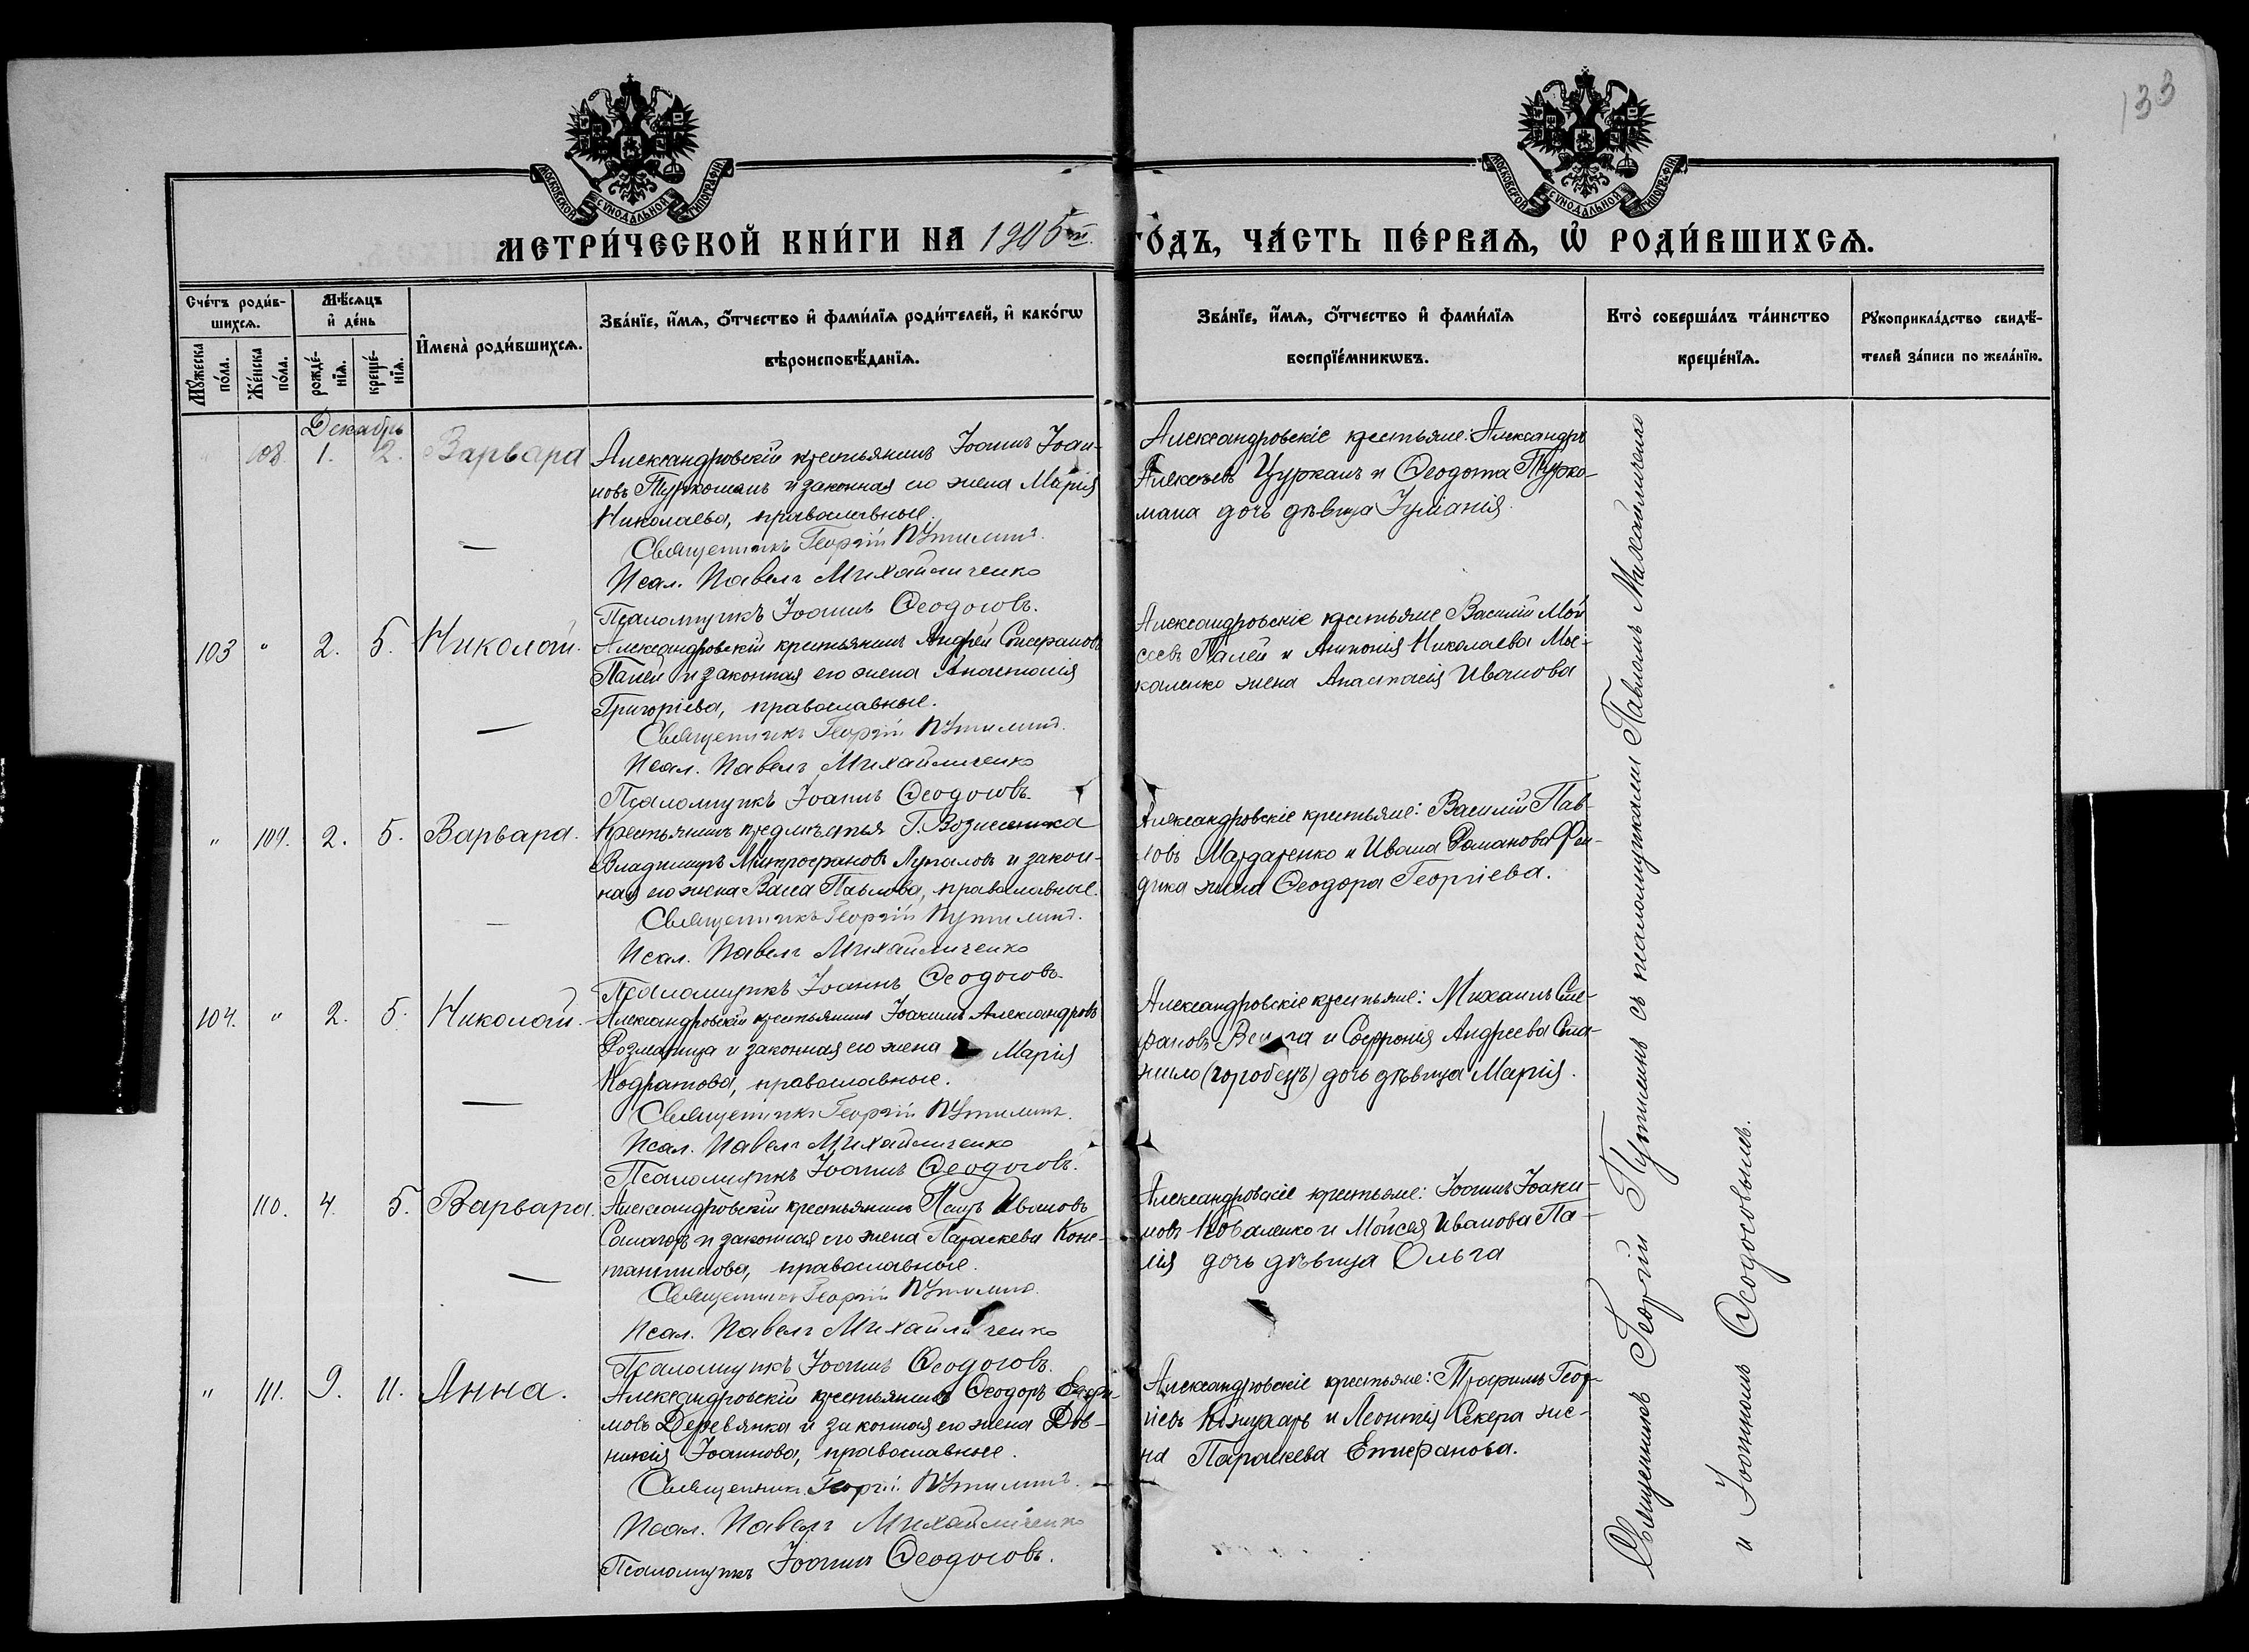 133
МОСКОВСКОЙ СѴНОДАЛЬНОЙ ТИПОГРАФІИ
МОСКОВСКОЙ СѴНОДАЛЬНОЙ ТИПОГРАФІИ
МЕТРИ́ЧЕСКОЙ КНИ́ГИ НА 1905й ГО́ДЪ, ЧА́СТЬ ПЕ́РВАѦ, Ѡ҆ РОДИ́ВШИХСѦ.
Сче́тъ роди́в-
шихсѧ.
Мꙋ́жеска
по́ла.
Же́нска
по́ла.
Мѣ́сѧцъ
и҆ де́нь
рожде́-
нїѧ.
креще́-
нїѧ.
И҆мена̀ роди́вшихсѧ.
Зва́нїе, и҆́мѧ, ѻ҆́тчество и҆ фами́лїѧ роди́телей, и҆ како́гѡ
вѣроисповѣ́данїѧ.
Зва́нїе, и҆́мѧ, ѻ҆́тчество и҆ фами́лїѧ
воспрїе́мникѡвъ.
Кто̀ соверша́лъ та́инство
креще́нїѧ.
Рꙋкоприкла́дство свидѣ́-
телей за́писи по жела́нїю.
Декабрь
108. 1. 2. Варвара
Александровскій крестьянинъ Іоаннъ Іоан-
новъ Туркоманъ и законная его жена Марія
Николаева, православные.
Священникъ Георгій Путилинъ.
Псал. Павелъ Михайличенко
Псаломщикъ Іоаннъ Ѳеодосовъ.
Александровскіе крестьяне: Александръ
Алексѣевъ Цурканъ и Ѳеодота Турко-
мана дочь дѣвица Іуліанія.
103 " 2. 5. Николай.
Александровскій крестьянинъ Андрей Стефановъ
Палей и законная его жена Анастасія
Григоріева, православные.
Священникъ Георгій Путилинъ.
Псал. Павелъ Михайличенко
Псаломщикъ Іоаннъ Ѳеодосовъ.
Александровскіе крестьяне Василій Мой
сеевъ Палей и Антонія Николаева Мос-
каленко жена Анастасія Иванова
" 109. 2. 5. Варвара.
Крестьянинъ предмѣстья Г. Вознесенска
Владимиръ Митрофановъ Лупаловъ и закон-
ная его жена Васса Павлова, православные.
Священникъ Георгій Путилинъ.
Псал. Павелъ Михайличенко
Псаломщикъ Іоаннъ Ѳеодосовъ.
Александровскіе крестьяне: Василій Пав-
ловъ Мардаренко и Ивана Романова
жена Ѳеодора Георгіева.
104. " 2. 5. Николай.
Александровскій крестьянинъ Іоакимъ Александровъ
Розмарица и законная его жена Марія
Кодратова, православные.
Священникъ Георгій Путилинъ.
Псал. Павелъ Михайличенко
Псаломщикъ Іоаннъ Ѳеодосовъ.
Александровскіе крестьяне: Михаилъ Сте-
фановъ и Софронія Андреева
(горобецъ) дочь дѣвица Марія.
110. 4. 5. Варвара.
Александровскій крестьянинъ Петръ Ивановъ
и законная его жена Параскева Конс-
тантинова, православные.
Священникъ Георгій Путилинъ.
Псал. Павелъ Михайличенко
Псаломщикъ Іоаннъ Ѳеодосовъ.
Александровскіе крестьяне: Іоаннъ Іоаки-
мовъ Коваленко и Мойсея Иванова Па-
лія дочь дѣвица Ольга
" 111. 9. 11. Анна.
Александровскій крестьянинъ Ѳеодоръ Евфи-
мовъ Деревянка и законная его жена Дом-
никія Іоаннова, православные.
Священникъ Георгій Путилинъ.
Псал. Павелъ Михайличенко
Псаломщикъ Іоаннъ Ѳеодосовъ.
Александровскіе крестьяне: Трофимъ Геор-
гіевъ и Леонтія Секера же-
на Параскева Епифанова.
Священникъ Георгій Путилинъ съ псаломщиками Павломъ Михайличенко
и Іоанномъ Ѳеодосовымъ.